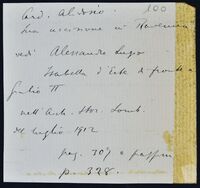 Card. Alidosio. 100
Sua uccisione in Ravenna
vedi Alessandro Luzio
Isabella d'Este di fronte a
Giulio II
nell'Arch. Stor. Lomb.
luglio 1912
pag. 307 e passim
p. 328.